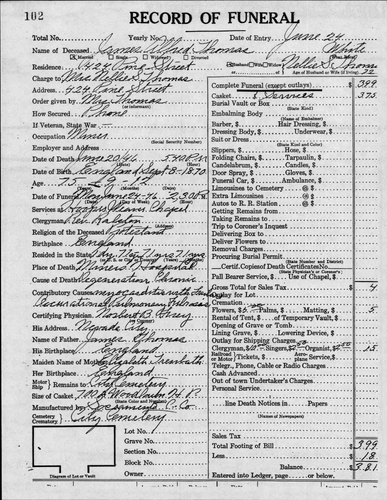 102
RECORD OF FUNERAL
Total No. Yearly No. Date of Entry June 24
Name of Deceased James Alfred Thomas White
Married Single Widowed Divorced Husband Wife Widow Nellie S. Thomas
Residence 424 Pine Street or Age of Husband or Wife if living 72
Charge to Mrs Nellie S Thomas
Address 424 Pine Street
Order given by Mrs Thomas
(or informant)
How Secured Phone
If Veteran, State War
Occupation Miner
(Social Security Number)
Employer and Address
Date of Death June 20/46 5:40 P.M.
Date of Birth England Sept 8-1870
Age 75 9 12
Date of Funeral June 24-46 2:30 P.M.
Services at Chapel
Clergyman Rev. Ralston
Religion of the Deceased Protestant
Birthplace England
Resided in the State
Place of Death Miners Hospital
Cause of Death Degeneration Chronic
Contributory Causes myocarditis with
Occupational Pulmonary Fibrosis
Certifying Physician
His Address Nevada City
Name of Father James Thomas
His Birthplace England
Maiden Name of Mother Elizabeth
Her Birthplace England
Motor Ship Remains to City Cemetery
Size of Casket
(State Color and Number)
Manufactured by
Cemetery Crematory City Cemetery
Lot No.
Grave No.
Section No.
Block No.
Owner
Diagram of Lot or Vault
Complete Funeral (except outlays) $ 399
Casket & Services 375
Burial Vault or Box
(State Kind)
Embalming Body
(Name of Embalmer)
Barber, $ Hair Dressing, $
Dressing Body, $ Underwear, $
Suit or Dress
(State Kind and Color)
Slippers, $ Hose, $
Folding Chairs, $ Tarpaulin, $
Candelabrum, $ Candles, $
Door Spray, $ Gloves, $
Funeral Car, $ Ambulance, $
Limousines to Cemetery @ $
Extra Limousines @ $
Autos to R. R. Station @ $
Getting Remains from
Taking Remains to
Trip to Coroner's Inquest
Delivering Box to
Deliver Flowers to
Removal Charges
Procuring Burial Permit
(State Number and District)
Certif. Copies of Death Certificates No.
(State Physician's or Coroner's)
Pall Bearer Service, $ Use of Chapel, $
Gross Total for Sales Tax $ 4
Outlay for Lot
Cremation
Flowers, $ 5 Palms, $ Matting, $ 5
Rental of Tent, $ of Temporary Vault, $
Opening of Grave or Tomb
Lining Grave, $ Lowering Device, $
Outlay for Shipping Charges
Clergyman, $ Singers, $ Organist, $ 15
Railroad Motor Tickets, $ Aeroplane Service, $
Telegr., Phone, Cable or Radio Charges
Cash Advanced
Out of town Undertaker's Charges
Personal Service
line Death Notices in Papers
(Names of Newspapers)
Sales Tax
Total Footing of Bill $ 399
Less 18
Balance $ 381
Entered into Ledger, page or below.